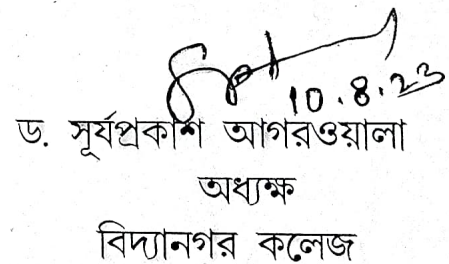 10.8.23
ড. সূর্যপ্রকাশ আগরওয়ালা
অধ্যক্ষ
বিদ্যানগর কলেজ